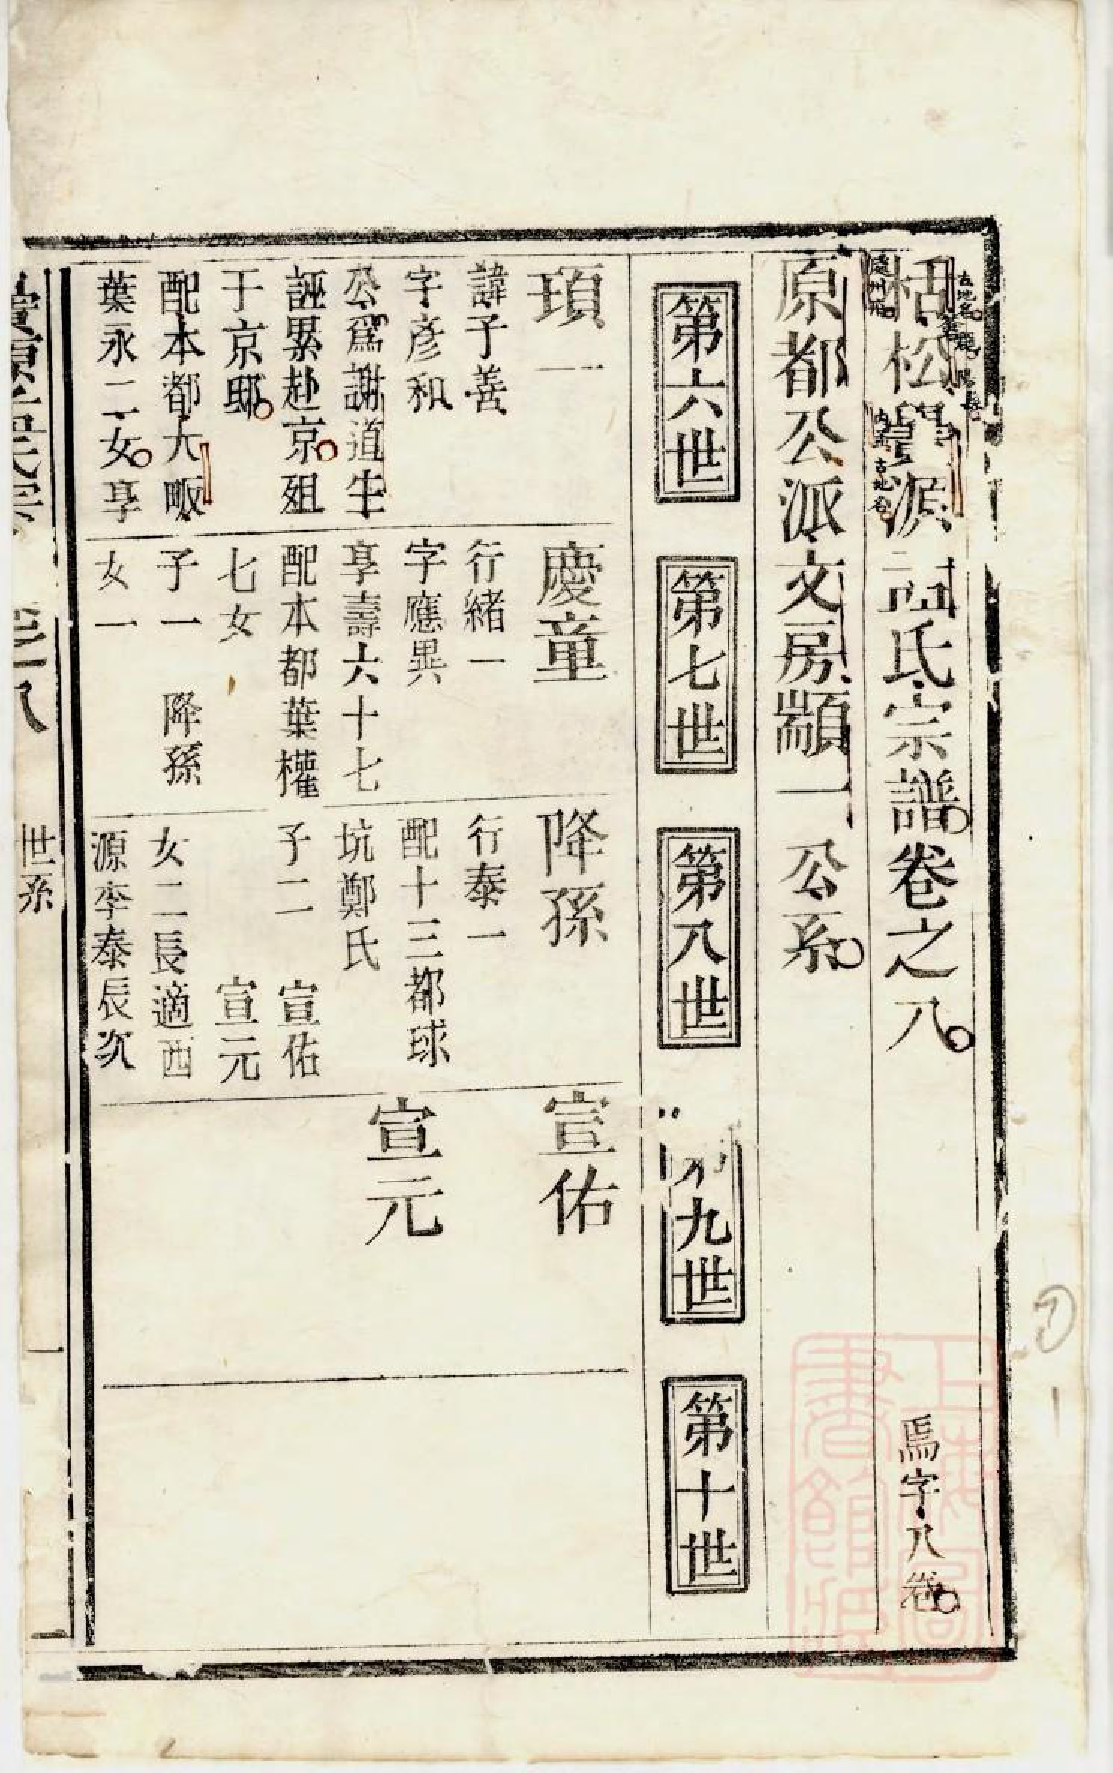 括松豐源孟氏宗譜卷之八
焉字八卷
原都公派文房顯一公系
第六世
第七世
第八世
第九世
第十世
頊一
諱子善
字彥和
公爲謝道生
誣累赴京殂
于京邸
配本都大畈
葉永二女享
慶童
行緒一
字應異
享壽六十七
配本都葉權
七女
子一 降孫
女一
降孫
行泰一
配十三都球
坑鄭氏
子二 宣佑
宣元
女二長適西
源李泰辰次
宣佑
宣元
世系
一
上海圖書館藏